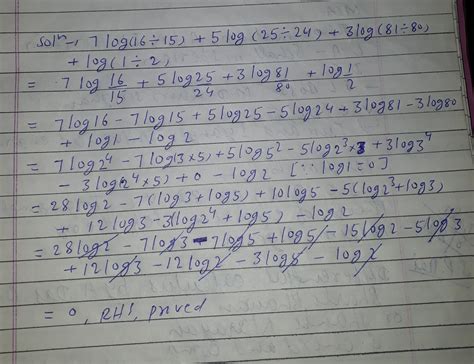 Solⁿ → 7 log(16÷15) + 5 log (25÷24) + 3 log (81÷80)
+ log (1÷2)
= 7 log 16/15 + 5 log 25/24 + 3 log 81/80 + log 1/2
= 7 log 16 − 7 log 15 + 5 log 25 − 5 log 24 + 3 log 81 − 3 log 80
+ log 1 − log 2
= 7 log 2⁴ − 7 log (3×5) + 5 log 5² − 5 log 2³×3 + 3 log 3⁴
− 3 log (2⁴×5) + 0 − log 2 [∵ log 1 = 0]
= 28 log 2 − 7 (log 3 + log 5) + 10 log 5 − 5 (log 2³ + log 3)
+ 12 log 3 − 3 (log 2⁴ + log 5) − log 2
= 28 log 2 − 7 log 3 − 7 log 5 + log 5 − 15 log 2 − 5 log 3
+ 12 log 3 − 12 log 2 − 3 log 5 − log 2
= 0, RHS, proved